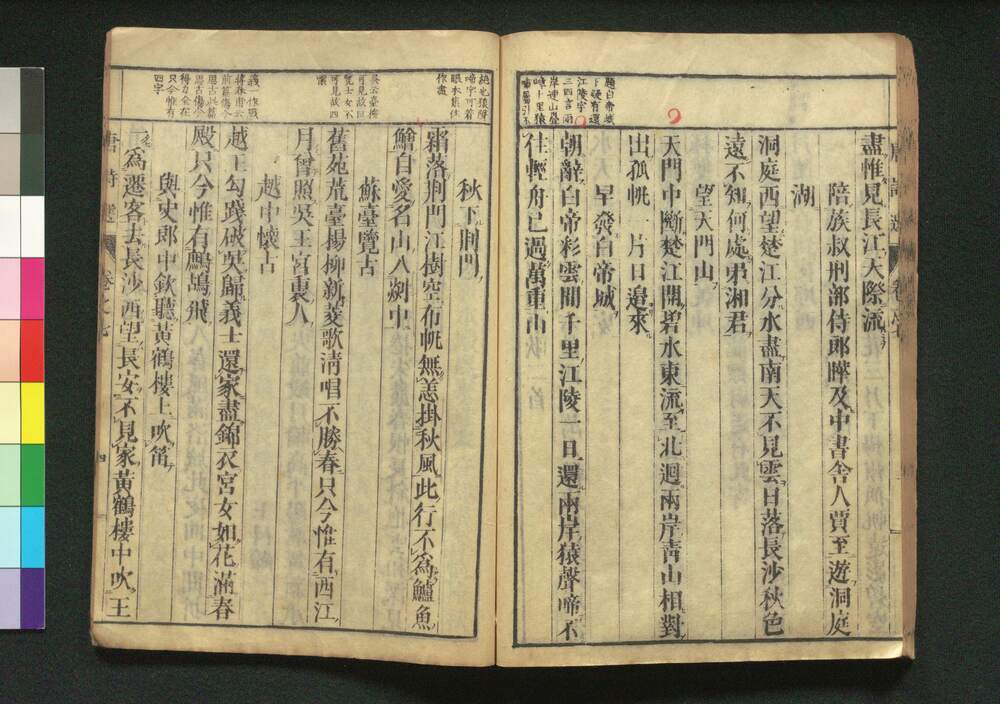 盡惟見長江天際流
陪族叔刑部侍郎曄及中書舍人賈至遊洞庭
湖
洞庭西望楚江分水盡南天不見雲日落長沙秋色
遠不知何處弔湘君
望天門山
天門中斷楚江開碧水東流至北迴兩岸靑山相對
出孤帆一片日邊來
早發白帝城
朝辭白帝彩雲間千里江陵一日還兩岸猿聲啼不
住輕舟已過萬重山
秋下荆門
霜落荆門江樹空布帆無恙掛秋風此行不爲鱸魚
鱠自愛名山入剡中
蘇臺覽古
舊苑荒臺楊柳新菱歌淸唱不勝春只今惟有西江
月曾照吳王宮裏人
越中懷古
越王勾踐破吳歸義士還家盡錦衣宮女如花滿春
殿只今惟有鷓鴣飛
與史郎中欽聽黃鶴樓上吹笛
一爲遷客去長沙西望長安不見家黃鶴樓中吹王
唐詩選
卷之七
四